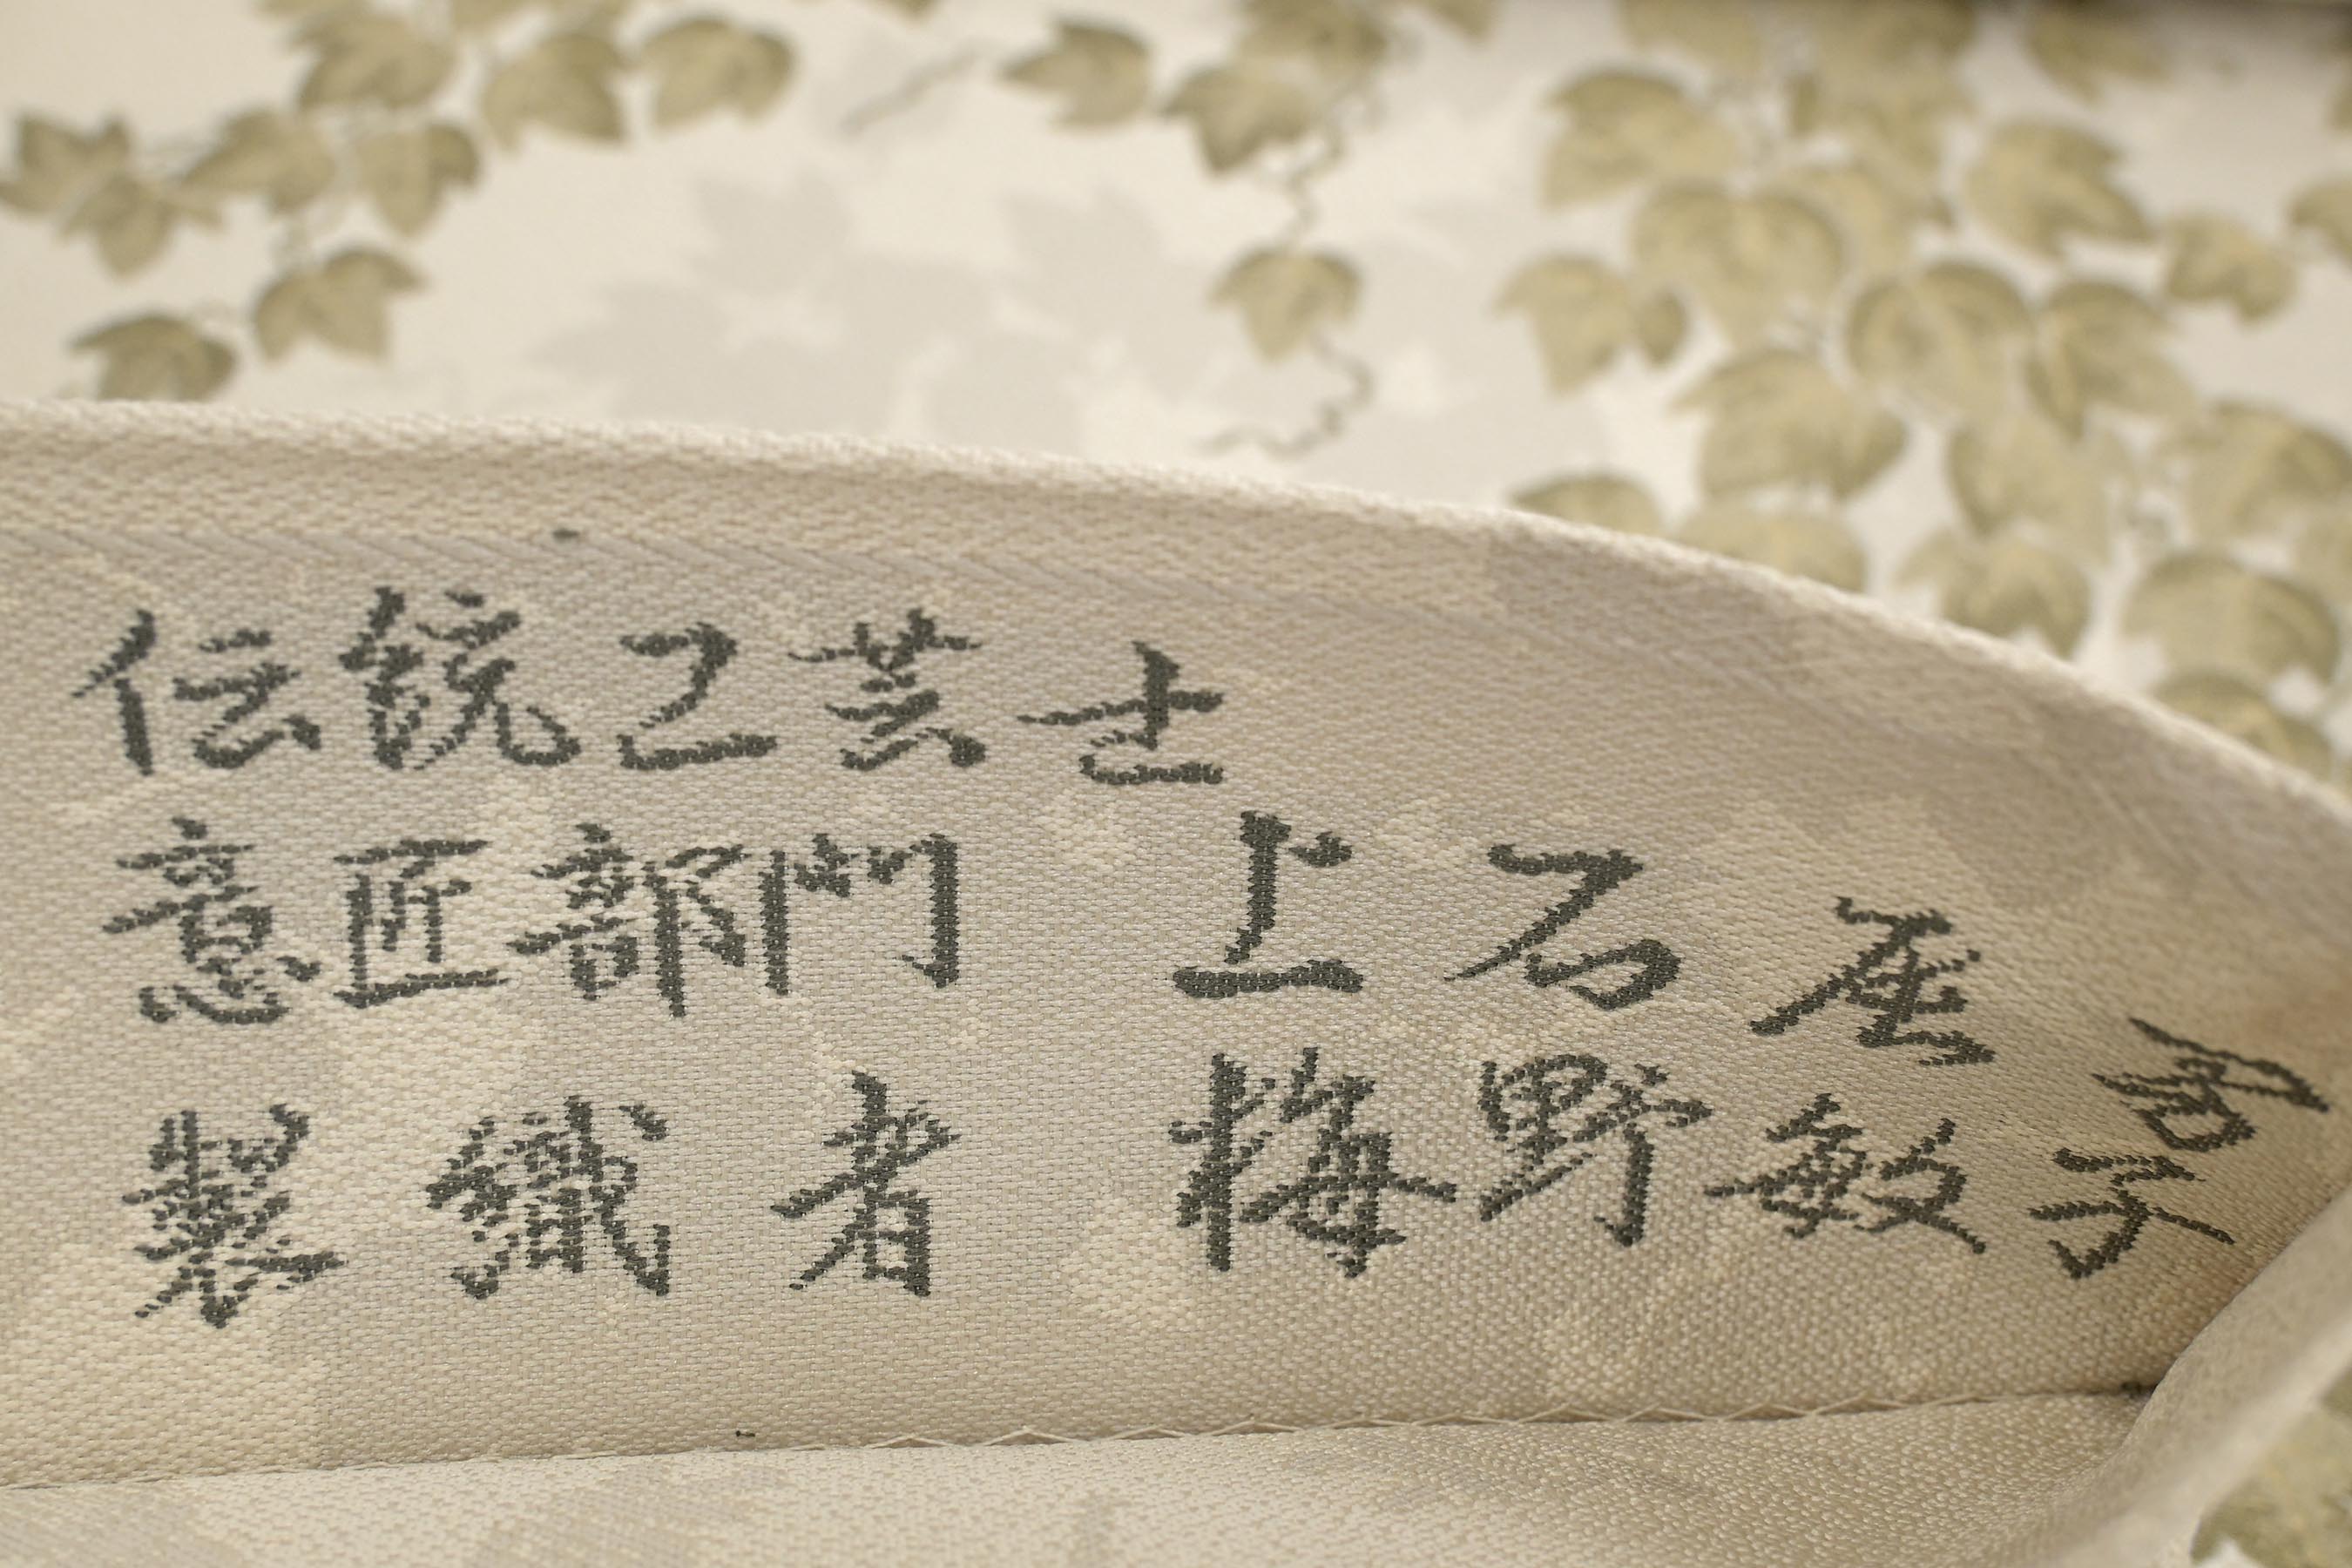 伝統工芸士
意匠部門 上石
製織者 梅野敏子